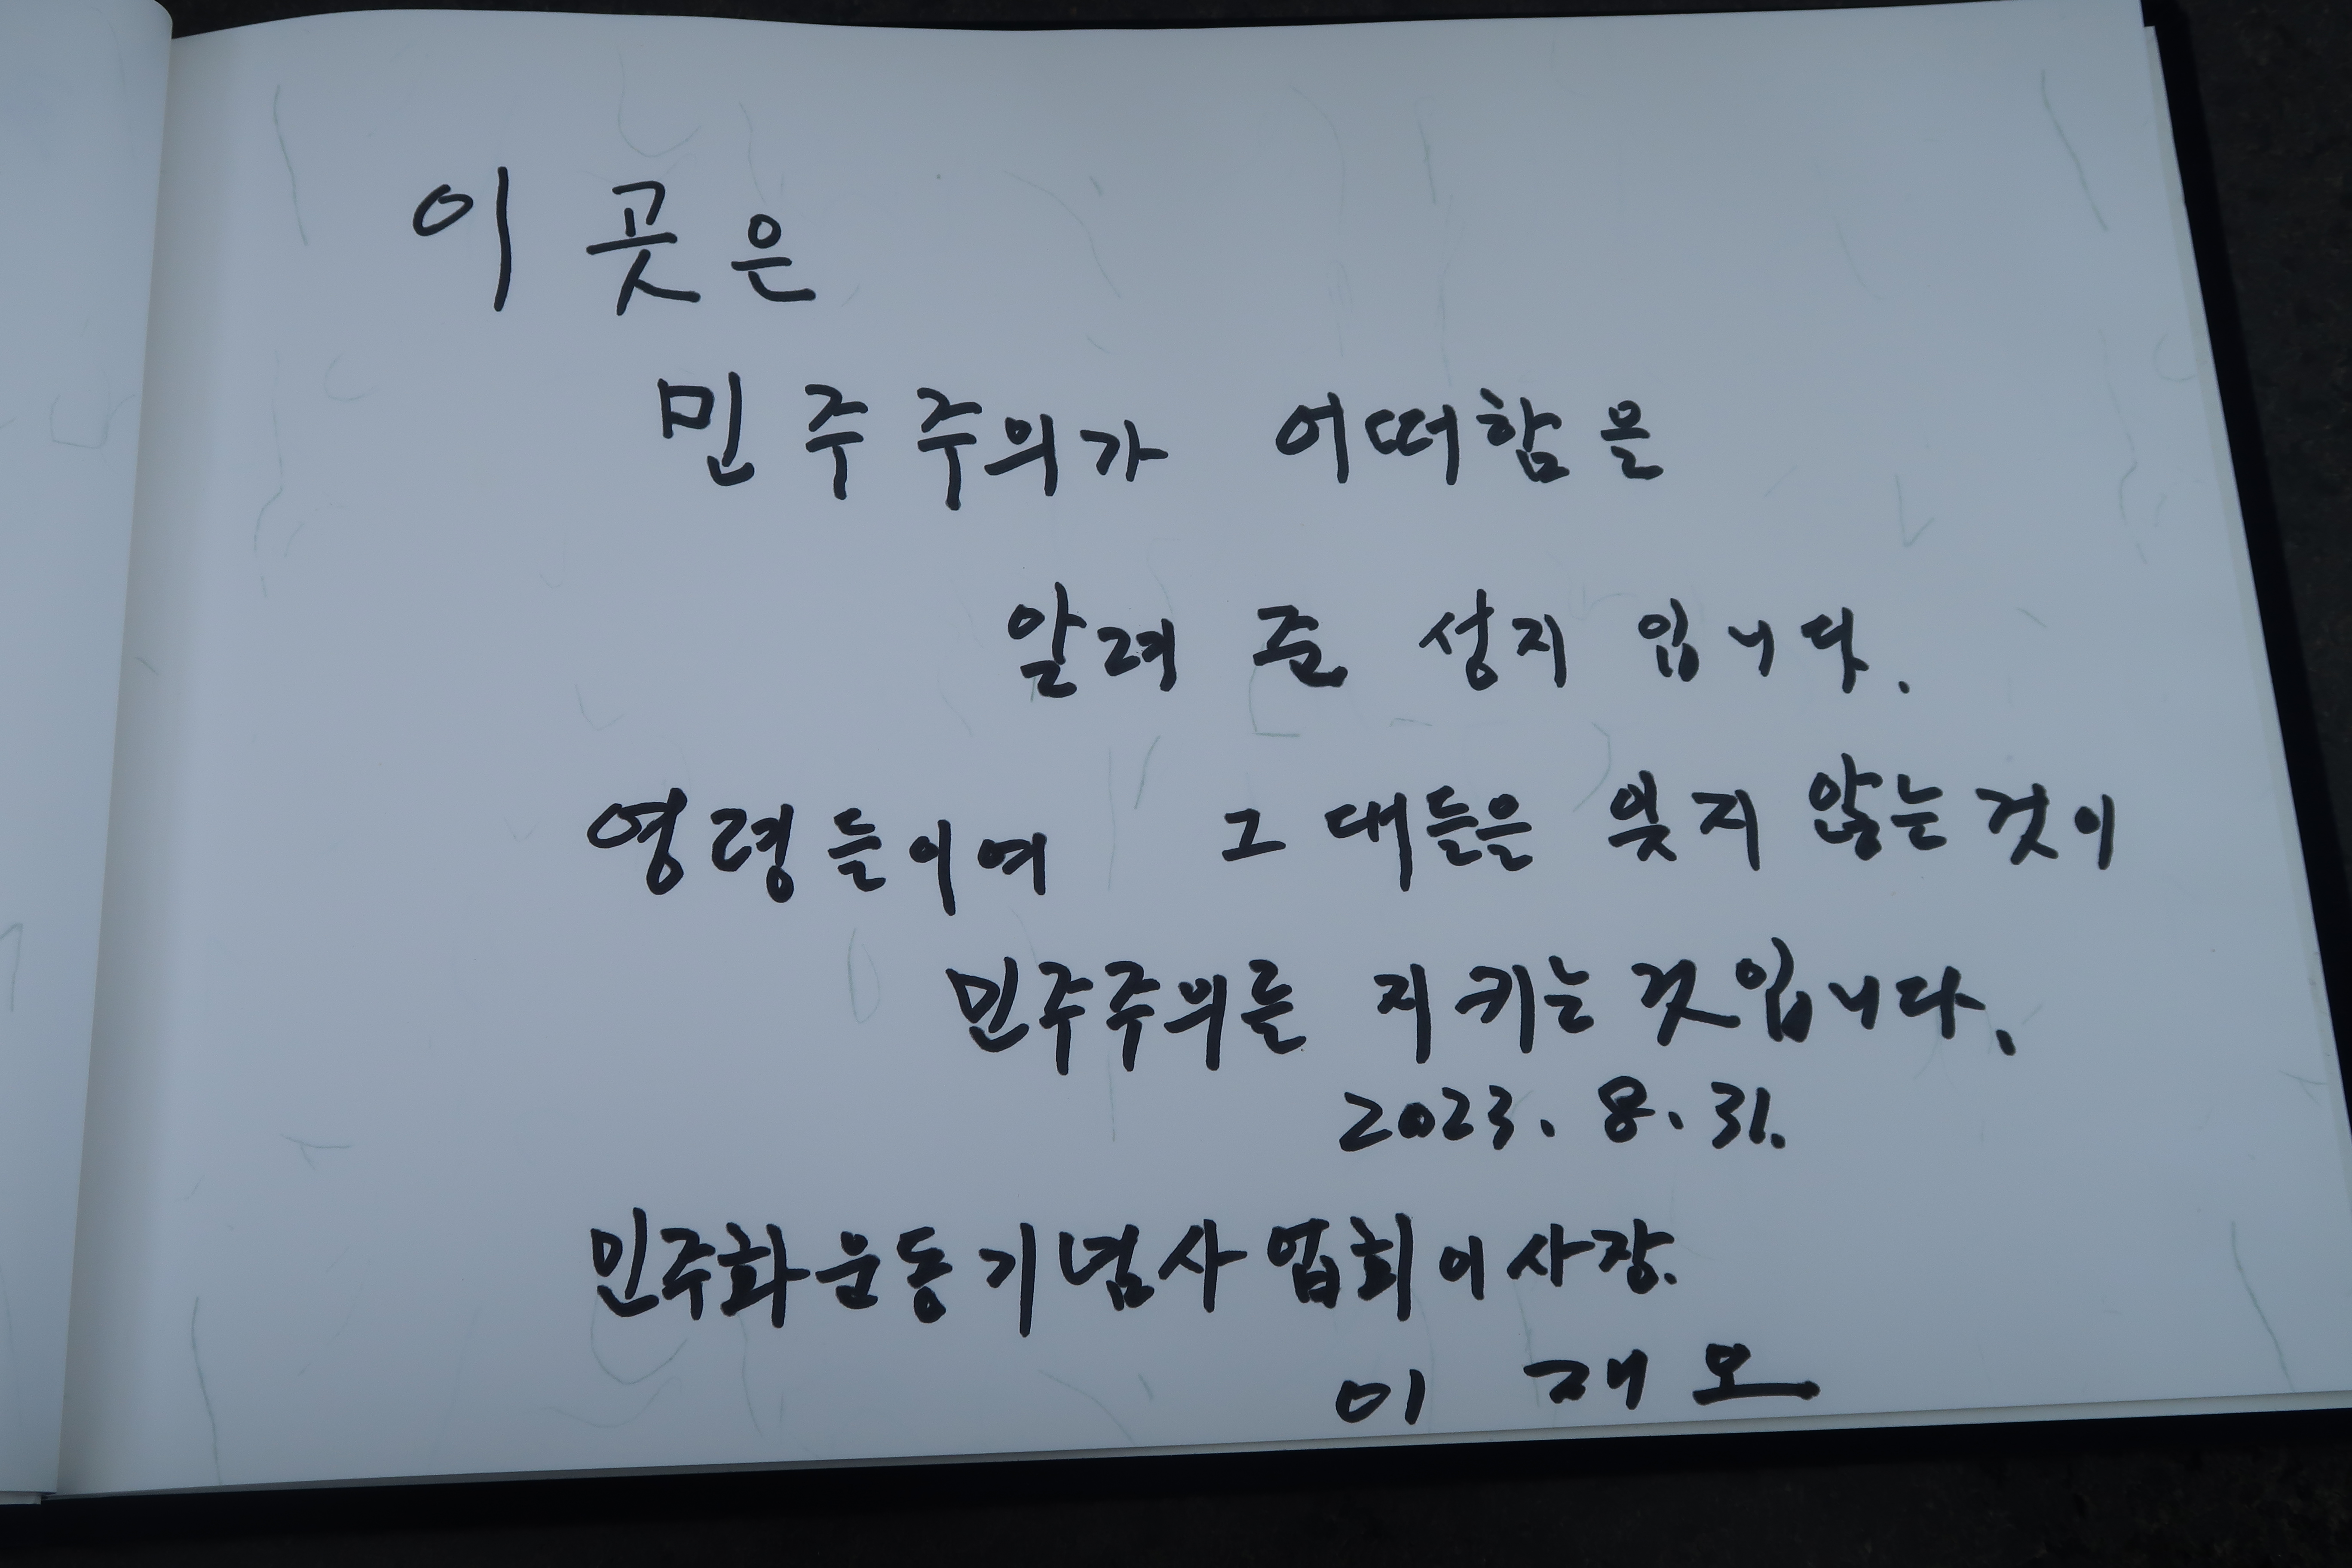 이 곳은
민주주의가 어떠함을
알려 준 성지 입니다.
영령들이여 그대들을 잊지 않는것이
민주주의를 지키는 것입니다.
2023. 8. 31.
민주화운동기념사업회이사장.
이 재오